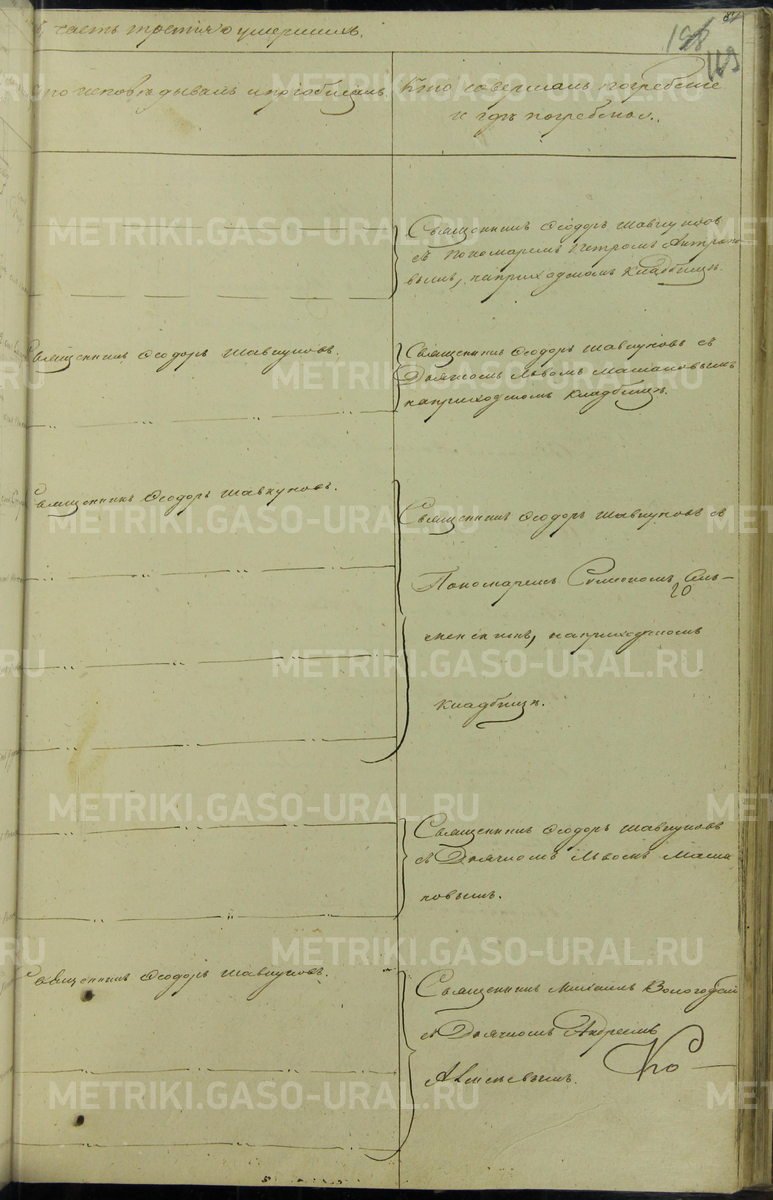 часть третiя о умершихъ.
исповѣдывалъ и прiобщалъ.
Кто совершалъ погребенiе
и гдѣ погребены.
Священникъ Ѳеодоръ Шавкуновъ
съ Пономаремъ Петромъ
вымъ, на приходскомъ кладбищѣ.
Священникъ Ѳеодоръ Шавкуновъ.
Священникъ Ѳеодоръ Шавкуновъ съ
Дьячкомъ Львомъ Машановымъ
на приходскомъ кладбищѣ.
Священникъ Ѳеодоръ Шавкуновъ.
Священникъ Ѳеодоръ Шавкуновъ съ
Пономаремъ Симеономъ
на приходскомъ
кладбищѣ.
Священникъ Ѳеодоръ Шавкуновъ
съ Дьячкомъ Львомъ Маша
новымъ.
Священникъ Ѳеодоръ Шавкуновъ.
Священникъ Михаилъ
съ Дьячкомъ Андреемъ
Алексѣевымъ.
METRIKI.GASO-URAL.RU